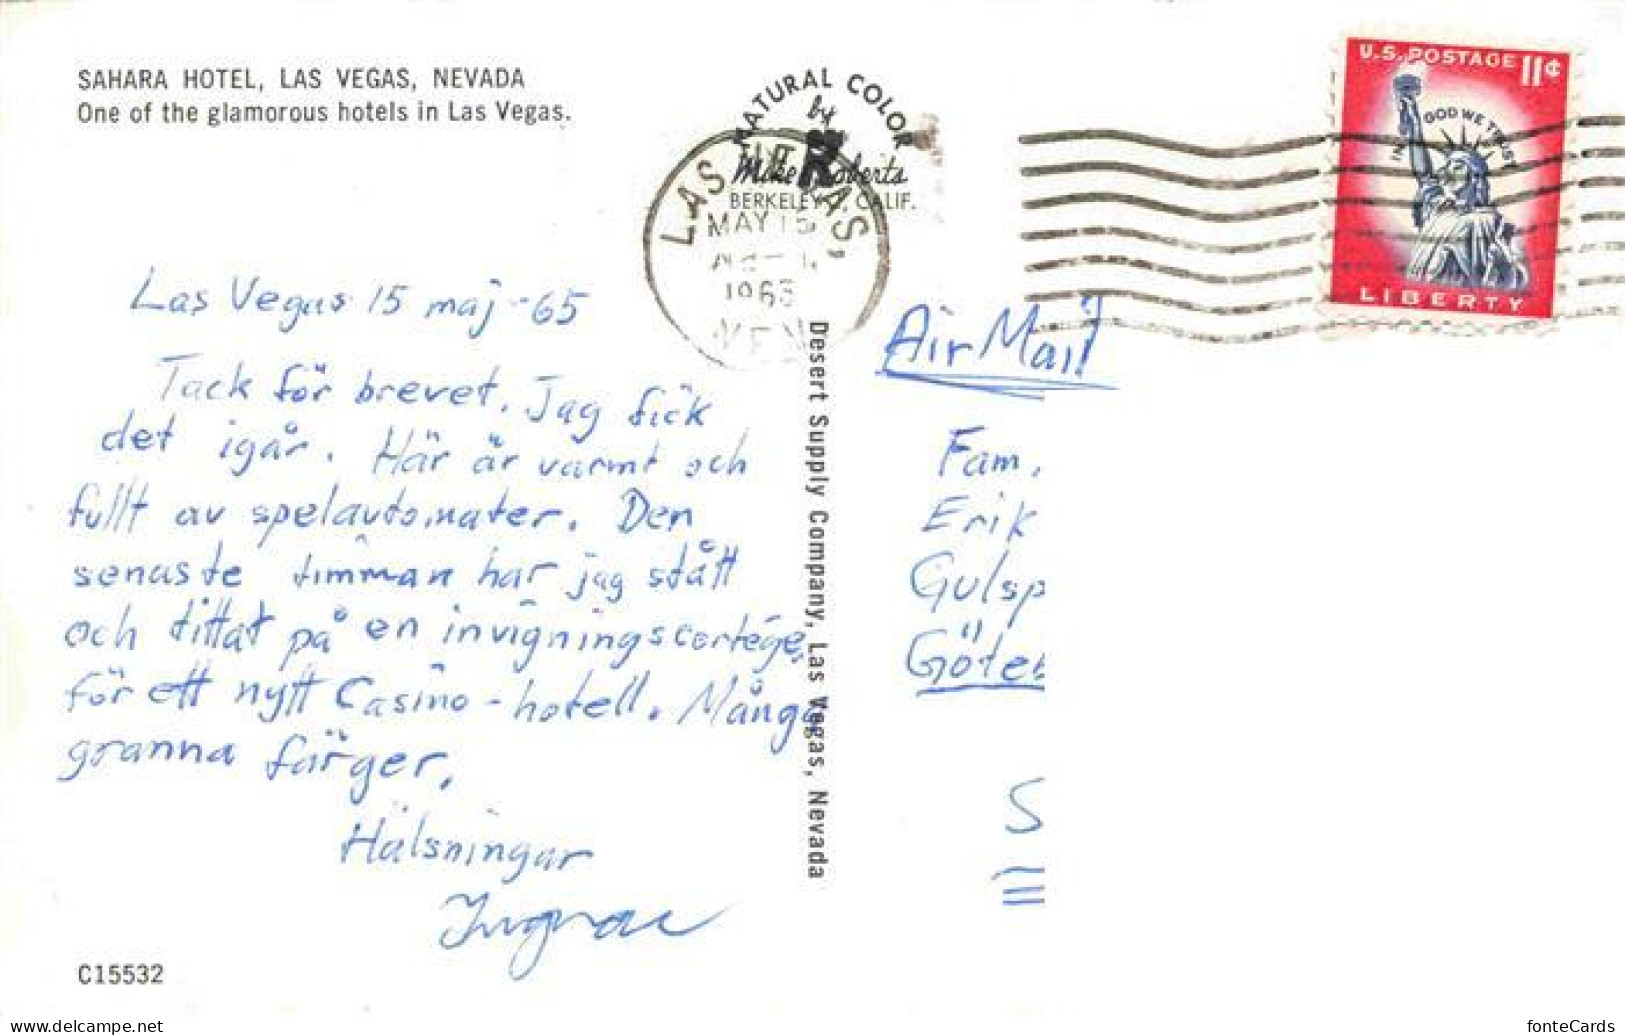 SAHARA HOTEL, LAS VEGAS, NEVADA
One of the glamorous hotels in Las Vegas.
NATURAL COLOR
by
Mike Roberts
BERKELEY, CALIF.
LAS VEGAS,
MAY 15
NEV
U.S. POSTAGE 11¢
IN GOD WE TRUST
LIBERTY
Las Vegas 15 maj -65
Tack för brevet. Jag fick
det igår. Här är varmt och
fullt av spelautomater. Den
senaste timman har jag stått
och tittat på en invigningscortége
för ett nytt Casino-hotell. Många
granna färger.
Hälsningar
Desert Supply Company, Las Vegas, Nevada
Air Mail
Fam.
Erik
Gulsp
Göteb
S
C15532
fonteCards